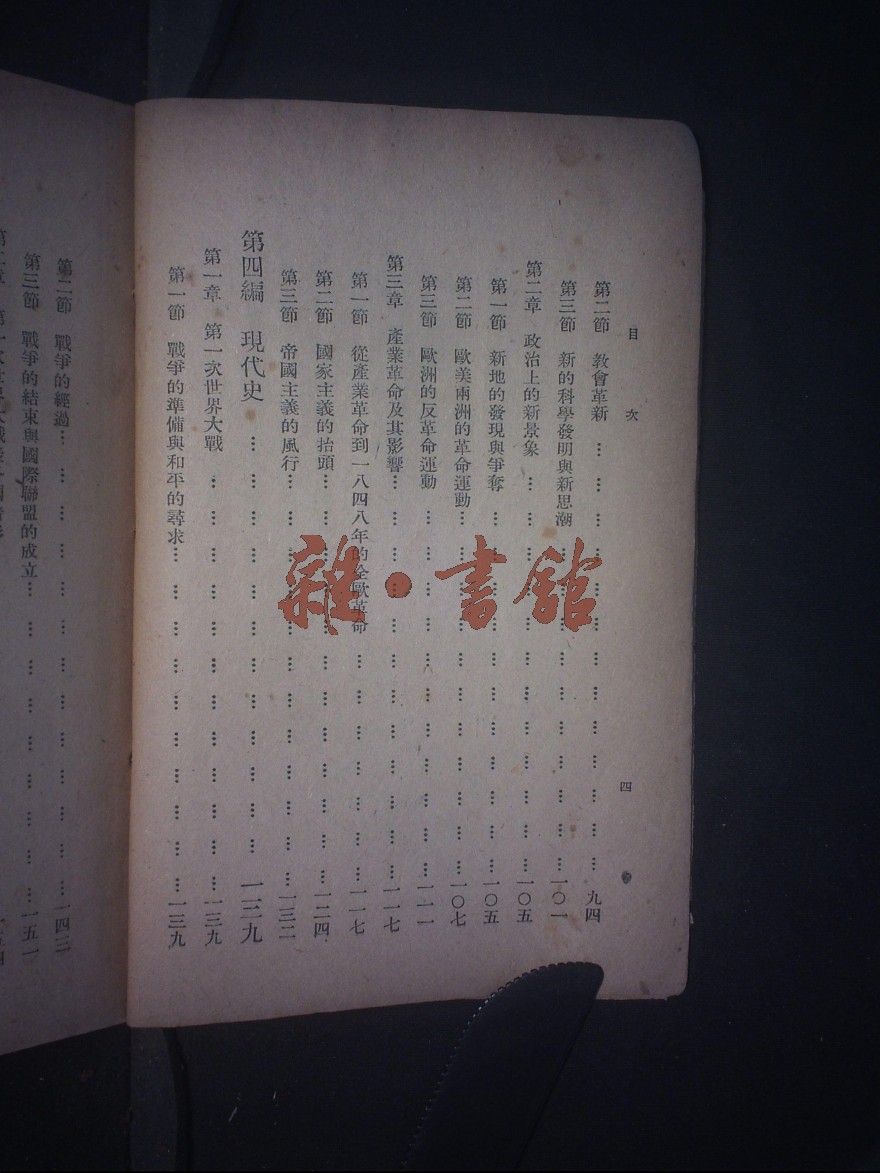 目次
四
第二節 教會革新………………………九四
第三節 新的科學發明與新思潮………………………一〇一
第二章 政治上的新景象………………………一〇五
第一節 新地的發現與爭奪………………………一〇五
第二節 歐美兩洲的革命運動………………………一〇七
第三節 歐洲的反革命運動………………………一一一
第三章 產業革命及其影響………………………一一七
第一節 從產業革命到一八四八年的全歐革命………………………一一七
第二節 國家主義的抬頭………………………一二四
第三節 帝國主義的風行………………………一三二
第四編 現代史………………………一三九
第一章 第一次世界大戰………………………一三九
第一節 戰爭的準備與和平的尋求………………………一三九
第二節 戰爭的經過………………………一四三
第三節 戰爭的結束與國際聯盟的成立………………………一五一
雜·書館